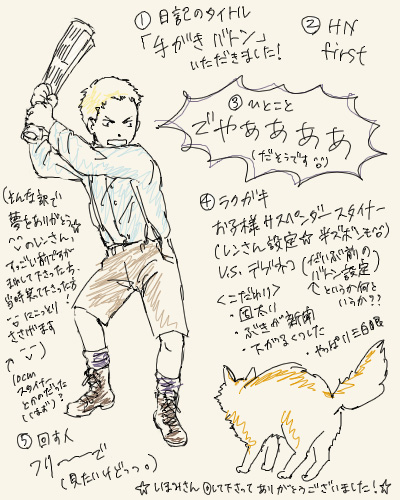 ① 日記のタイトル
「手がきバトン」
いただきました!
② HN
first
③ ひとこと
でやぁぁぁぁ
(だそうです^^)
④ ラクガキ
お子様サスペンダースタイナー
(レンさん設定☆半ズボンも^^)
V.S. デヴネコ
(だいぶ前の
バトン設定)
というか何と
いうか??
<こだわり>
・眉太い
・ぶきが新聞
・下がるくつした
・やっぱり三白眼
(そんな訳で
夢をありがとう☆
のレンさん、
すっごい前ですが
まわして下さった方、
当時笑って下さった方
にこっとり!
ささげます
10cm
スタイナー
とかのだった
⑤ 回す人
フリーーで
(見たいけどっっ。)
☆しほみさん回して下さってありがとうございました!☆